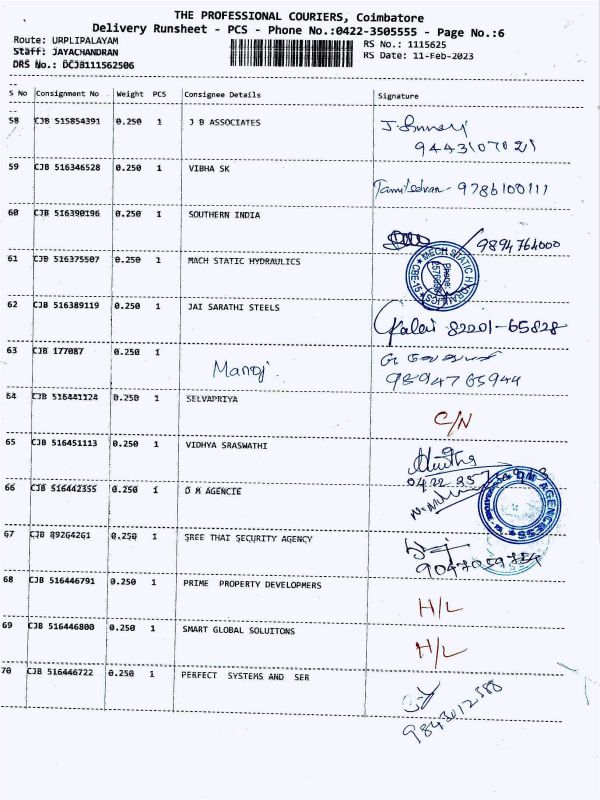 THE PROFESSIONAL COURIERS, Coimbatore
Delivery Runsheet - PCS - Phone No.:0422-3505555 - Page No.:6
Route: URPLIPALAYAM RS No.: 1115625
Staff: JAYACHANDRAN RS Date: 11-Feb-2023
DRS No.: DCJB111562506
S No Consignment No Weight PCS Consignee Details Signature
58 CJB 515854391 0.250 1 J B ASSOCIATES
9443107021
59 CJB 516346528 0.250 1 VIBHA SK
Tamilselvan - 9786100111
60 CJB 516390196 0.250 1 SOUTHERN INDIA
9894764000
61 CJB 516375507 0.250 1 MACH STATIC HYDRAULICS
MECH STATIC HYDRAULICS
CBE-15
62 CJB 516389119 0.250 1 JAI SARATHI STEELS
Kalai 82201-65828
63 CJB 177087 0.250 1 Manoj
9894765944
64 CJB 516441124 0.250 1 SELVAPRIYA C/N
65 CJB 516451113 0.250 1 VIDHYA SRASWATHI
66 CJB 516442355 0.250 1 D M AGENCIE
DM AGENCIESS
67 CJB 89264261 0.250 1 SREE THAI SECURITY AGENCY
68 CJB 516446791 0.250 1 PRIME PROPERTY DEVELOPMERS H/L
69 CJB 516446800 0.250 1 SMART GLOBAL SOLUITONS H/L
70 CJB 516446722 0.250 1 PERFECT SYSTEMS AND SER
9843012388